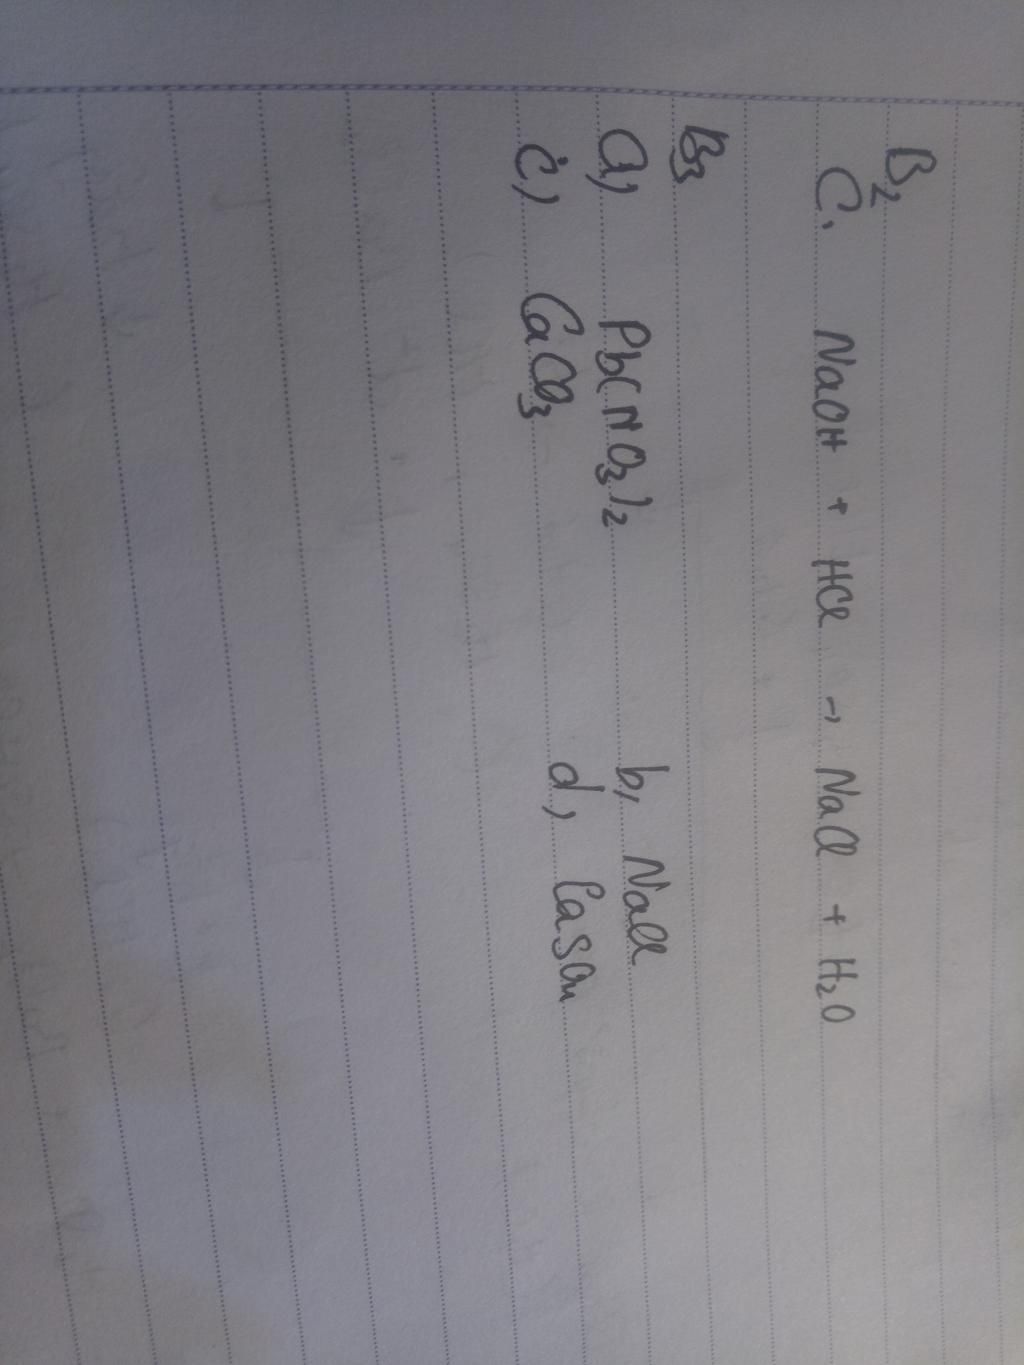 B2
C, NaOH + HCl → NaCl + H2O
B3
a, Pb(NO3)2 b, NaCl
c, CaCO3 d, CaSO4